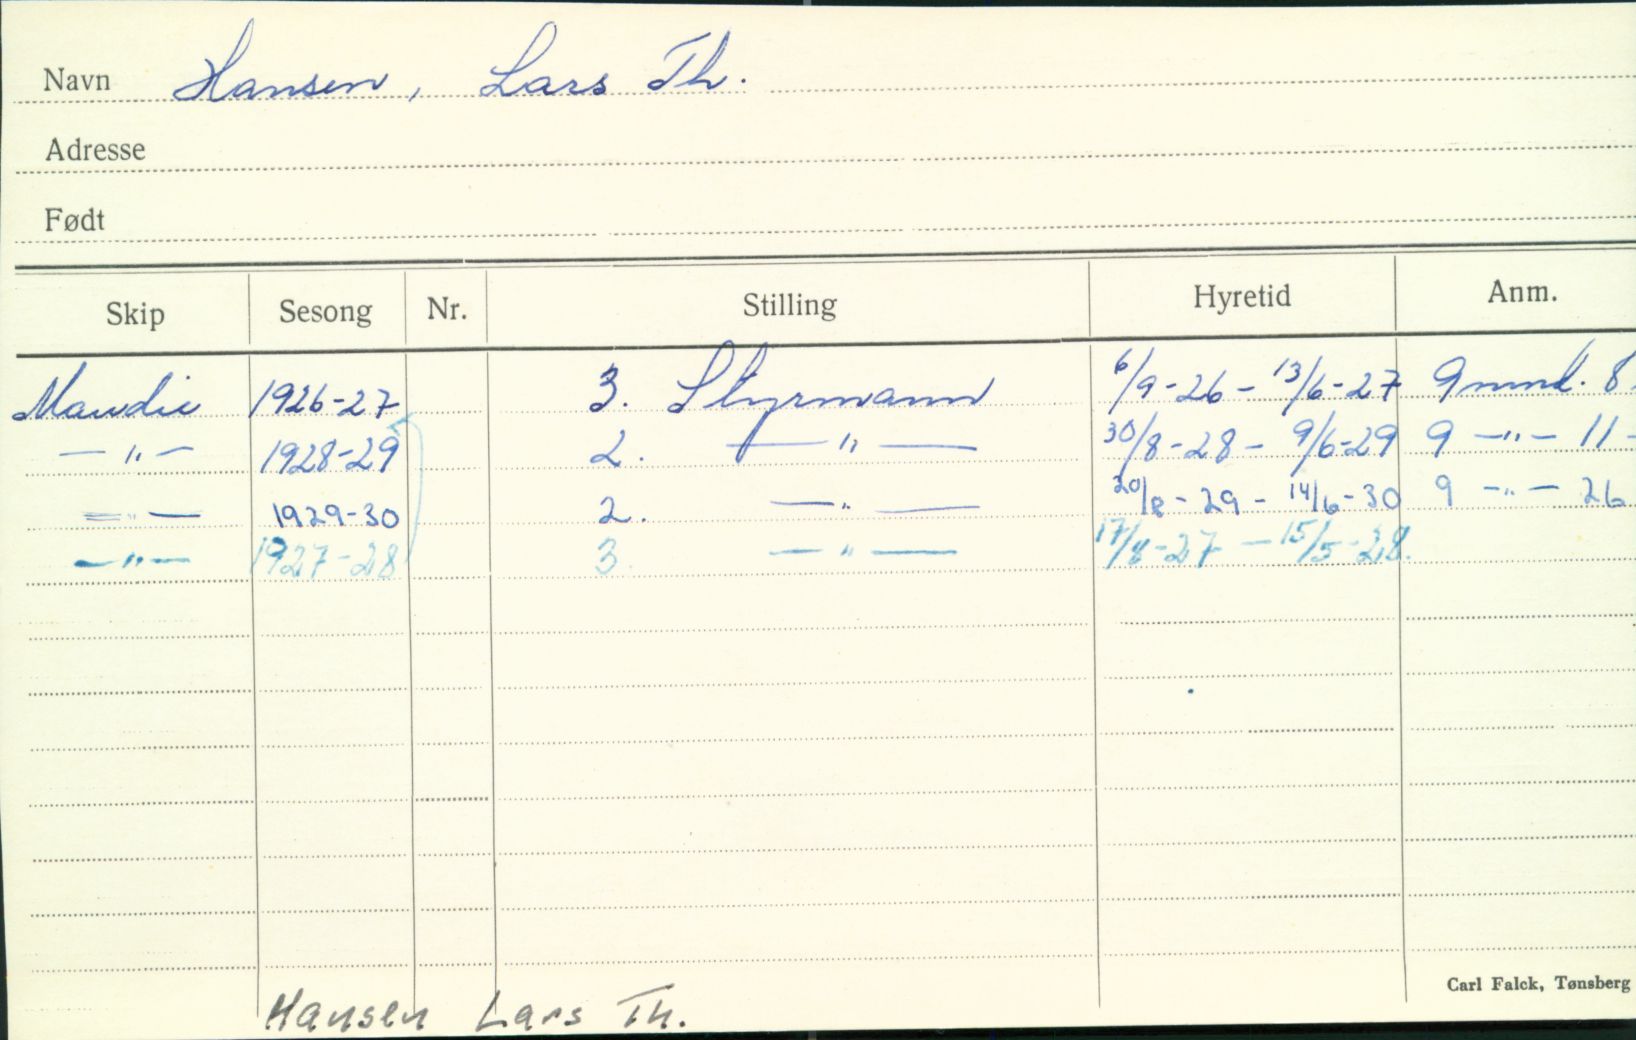 Navn Hansen, Lars Th.
Adresse
Født
Skip Sesong Nr. Stilling Hyretid Anm.
Maudie 1926-27 3. Styrmann 6/9-26 - 13/6-27 9 mnd. 8
— " — 1928-29 2. — " — 30/8-28 - 9/6-29 9 — " — 11 -
— " — 1929-30 2. — " — 20/8-29 - 14/6-30 9 — " — 26
— " — 1927-28 3. — " — 17/8-27 - 15/5-28.
Carl Falck, Tønsberg
Hansen Lars Th.